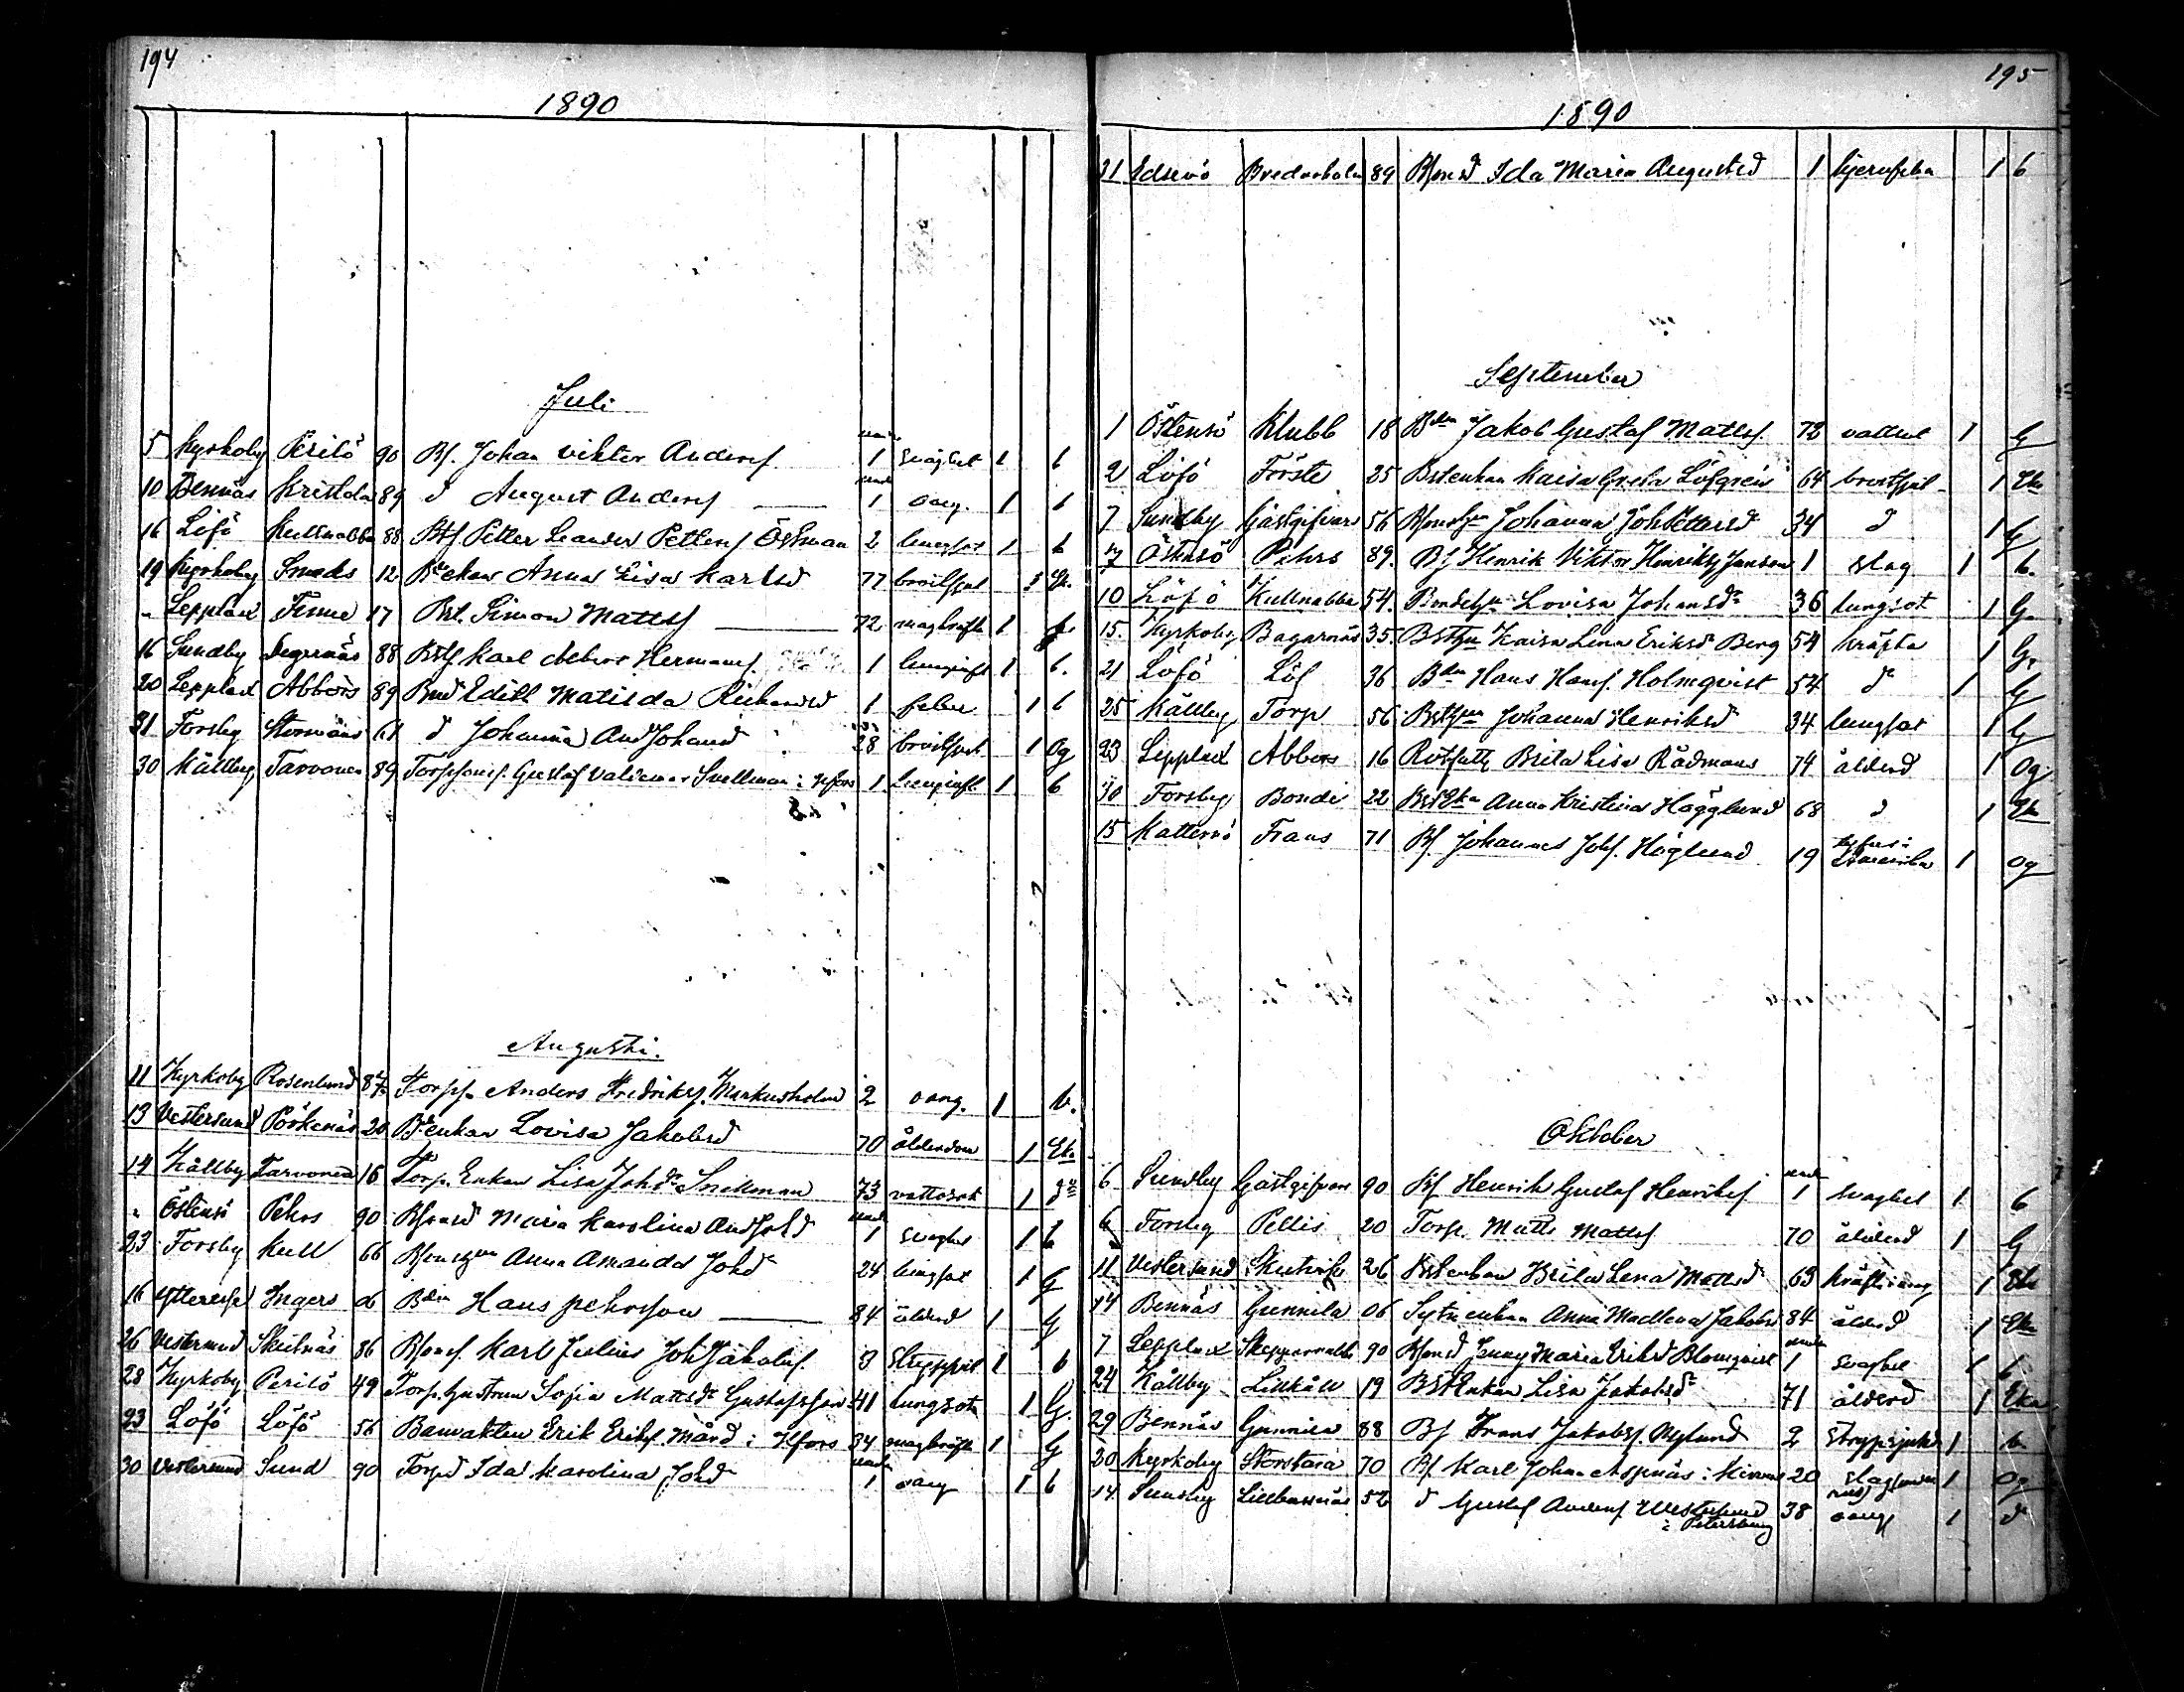 194
1890
Juli
5 Kyrkoby Perilö 90 Bs. Johan Viktor Anders. 1 svaghet 1 b
10 Bennäs Kristola 89 d August Anders 1 oang. 1 b
16 Löfö Kullnabba 88 Petter Leander Petters Östman 2 lungsot 1 b
19 Kyrkoby Smeds 12 Anna Lisa Karlsd 77 bröstsjuk 1 Ek.
" Lepplax Finne 17 Bst. Simon Matts 72 magkräft 1
16 Sundby Degernäs 88 Karl Albert Hermans. 1 lunginfl 1 b.
20 Lepplax Abbors 89 Edith Matilda Rickardsd 1 feber 1 b
31 Forsby Stornäs 61 d Johanna AndJohansd 28 bröstsjuk 1 Og
30 Källby Tarvonen 89 Gustaf Valdemar Snellman i Hfors 1 lunginfl 1 b
Augusti.
11 Kyrkoby Rosenlund 87 Torps. Anders Fredriks. Markusholm 2 oang. 1 b.
13 Vestersund Pörkenäs 20 B.enkan Lovisa Jakobsd 70 ålderdom 1 Eka
14 Källby Tarvonen 16 Torp. Enkan Lisa Johsdr Snellman 73 vattusot 1
" Östensö Pehrs 90 Bonsd Maria Karolina AndJohd 1 svaghet 1 b
23 Forsby Kull 66 Anna Amanda Johd 24 lungsot 1 G
16 Ytteresse Ingers 06 Bdn Hans Pehrsson 84 ålderd 1 G
26 Vestersund Skutnäs 86 Bons. Karl Julius JohJakobs. 3 strypsjuk 1 b
28 Kyrkoby Perilö 49 Torp.hustrun Sofia Mattsdr Gustafsson 41 lungsot 1 G.
23 Löfö Löfö 56 Banvakten Erik Eriks. Mård i Hfors 34 magkräfta 1 G
30 Vestersund Sund 90 Torpd Ida Karolina Johd 1 oang 1 b
195
1890
31 Edsevö Bredarholm 89 Bonsd Ida Maria Augustsd 1 hjernfeber 1 b
September
1 Östensö Klubb 18 Bdn Jakob Gustaf Matts. 72 vattus 1 G
2 Löfö Förste 25 Bstenkan Kaisa Greta Löfgren 64 bröstsjuk 1 Eka
7 Sundby Gästgifvars 56 Johanna JohPettersd 34 d 1 G
7 Östensö Pehrs 89. Bs Henrik Viktor Henriks Janson 1 slag 1 b.
10 Löfö Kullnabba 54. Lovisa Johansdr 36 lungsot 1 G.
15. Kyrkoby Bagarnäs 35. Kaisa Lena Eriksd Berg 54 kräfta 1 G.
21 Löfö Löf 36 Bdn Hans Hans. Holmqvist 54 d 1 G
25 Källby Torp 56 Johanna Henriksd 34 lungsot 1 G
23 Lepplax Abbors 16 Rotfattg Brita Lisa Rådmans 74 ålderd 1 Og.
30 Forsby Bonde 22 BstEka Anna Kristina Hägglund 68 d 1 Eka
15 Katternö Frans 71 Bs. Johannes Johs. Höglund 19 tyfus i Amerika 1 Og
Oktober
6 Sundby Gästgifvars 90 Bs Henrik Gustaf Henriks. 1 svaghet 1 b
6 Forsby Pellis 20 Torp. Matts Matts 70 ålderd 1 G
11 Vestersund 26 Bstenkan Brita Lena Mattsdr 63 kräfta 1 Eka
14 Bennäs Gunnila 06 Sytn.enkan Anna Madlena Jakobsd 84 ålderd 1 Eka
7 Lepplax 90 Bonsd Jenny Maria Eriksd Blomqvist 1 svaghet 1 b
24 Källby Lillkåll 19 BstEnkan Lisa Jakobsdr 71 ålderd 1 Eka
29 Bennäs Gunnila 88 Bs Frans Jakobss. Nylund 2 strypsjuka 1 b
20 Kyrkoby Storstara 70 Bs. Karl Johan Aspnäs i 20 slag 1 Og
14. Sundby Lillbusnäs 52 d Gustaf Anders. Westerlund i Petersburg 38 oang 1 d